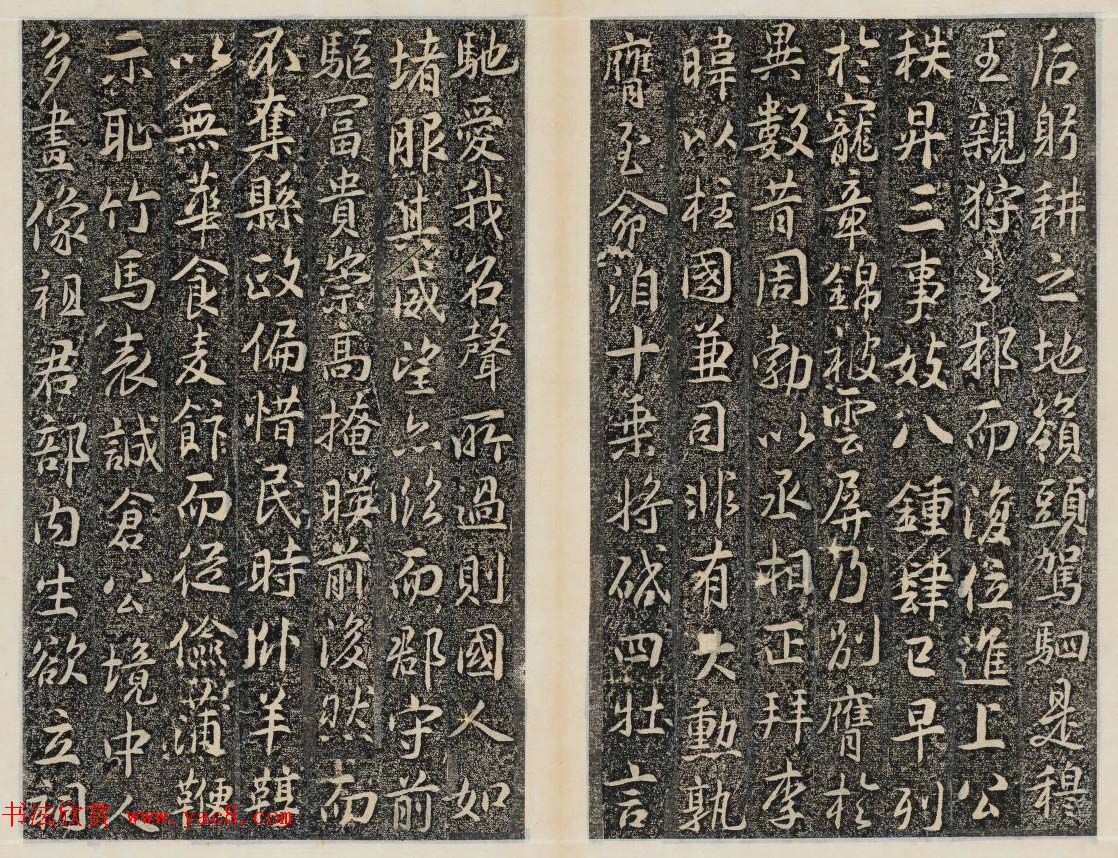 后躬耕之地嶺頭駕駟是穆
王親狩之邦而復位進上公
秩昇三事妓八鍾肆已早列
於寵章錦被雲屏乃別膺於
異數昔周勃以丞相正拜李
暐以柱國兼司非有大勳孰
膺至命洎十乘將四牡言
馳愛我名聲所過則國人如
堵服其威望亦後而郡守前
驅冨貴崇高掩暎前後然而
不奪縣政偏惜民時卧羊韉
以無華食麦飰而從儉蒲鞭
示恥竹馬表誠倉公境中人
多畫像祖君部内生欲立祠
书法欣赏 www.yac8.com